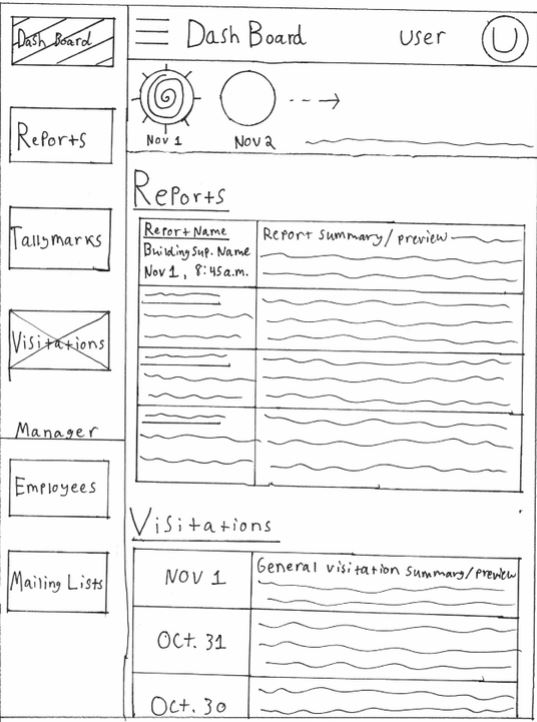 Dash Board
Reports
Tallymarks
Visitations
Manager
Employees
Mailing Lists
Dash Board
User
U
Nov 1
Nov 2
Reports
Report Name
Building Sup. Name
Nov 1, 8:45 a.m.
Report summary/preview
Visitations
NOV 1
General visitation summary/preview
Oct. 31
Oct. 30